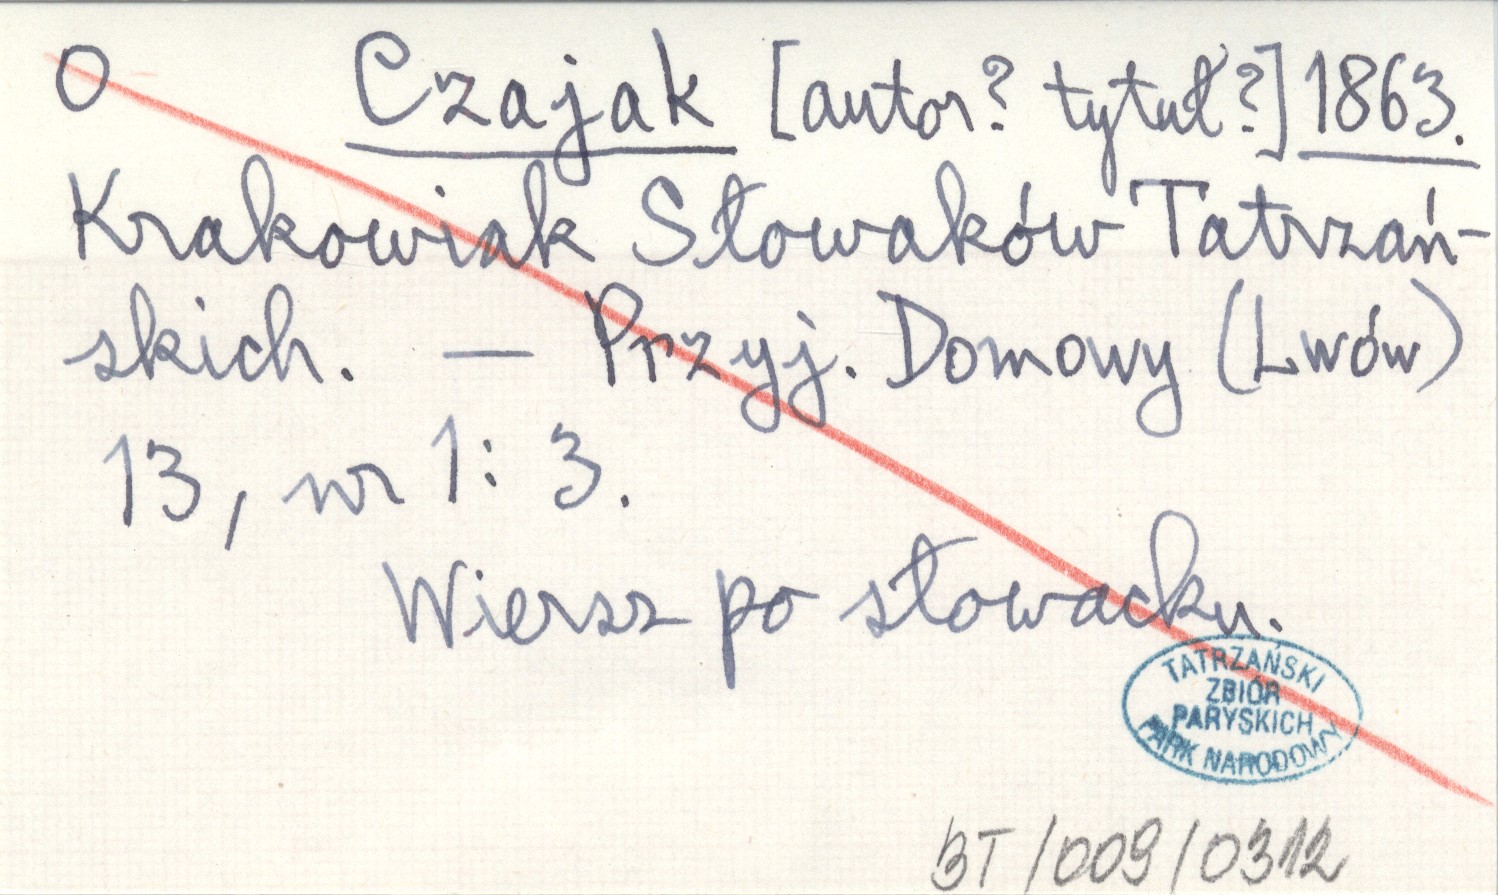 O Czajak [autor? tytuł?] 1863.
Krakowiak Słowaków Tatrzań-
skich. — Przyj. Domowy (Lwów)
13, nr 1: 3.
Wiersz po słowacku.
TATRZAŃSKI
ZBIÓR
PARYSKICH
PARK NARODOWY
BT/009/0312